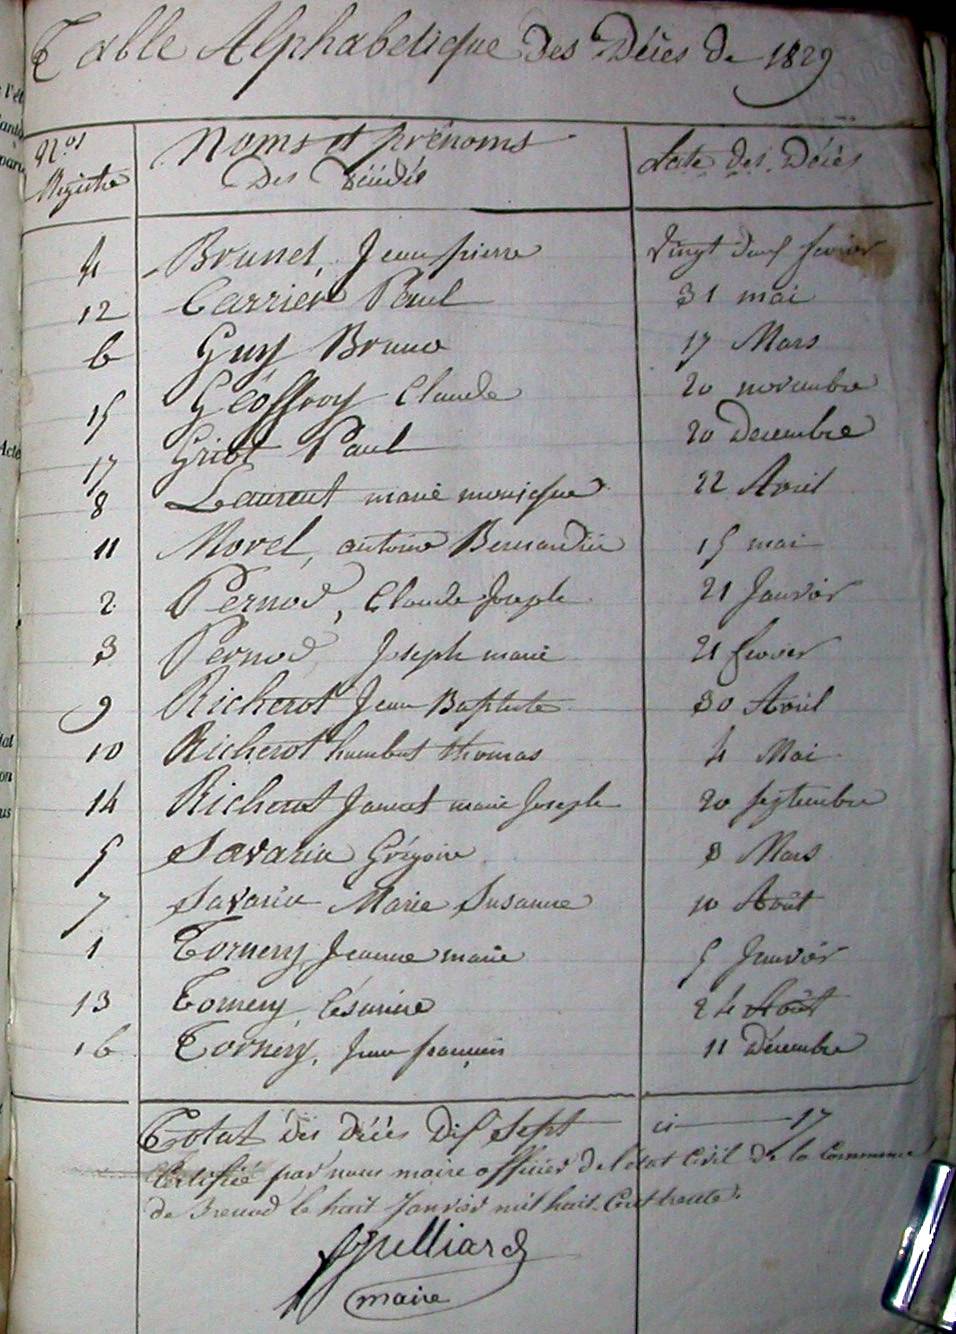 Table Alphabetique des Décès de 1829
N.os Registre
Noms et prénoms
Des Décédés
Date des Décès
4 Brunet, Jean pierre vingt deux fevrier
12 Carrier Paul 31 mai
6 Guy Bruno 17 Mars
15 Géoffroy Claude 20 novembre
17 Griot Paul 20 Decembre
8 Laurent marie monique 22 Avril
11 Morel, antoine Bernardin 15 mai
2 Pernod, Claude Joseph 21 Janvier
3 Pernod Joseph marie 21 fevrier
9 Richerot Jean Baptiste 30 Avril
10 Richerot humbert thomas 4 Mai
14 Richerot marie Joseph 20 septembre
5 Savarin Grégoire 8 Mars
7 Savarin Marie Susanne 10 Août
1 Tornery Jeanne marie 5 Janvier
13 Tornery Césarine 24 Août
16 Tornery, Jean françois 11 Décembre
Total des décès dix sept ci 17
Certifié par nous maire officier de l'état Civil de la Commune
de Brenod le huit Janvier mil huit Cent trente.
Julliard
maire